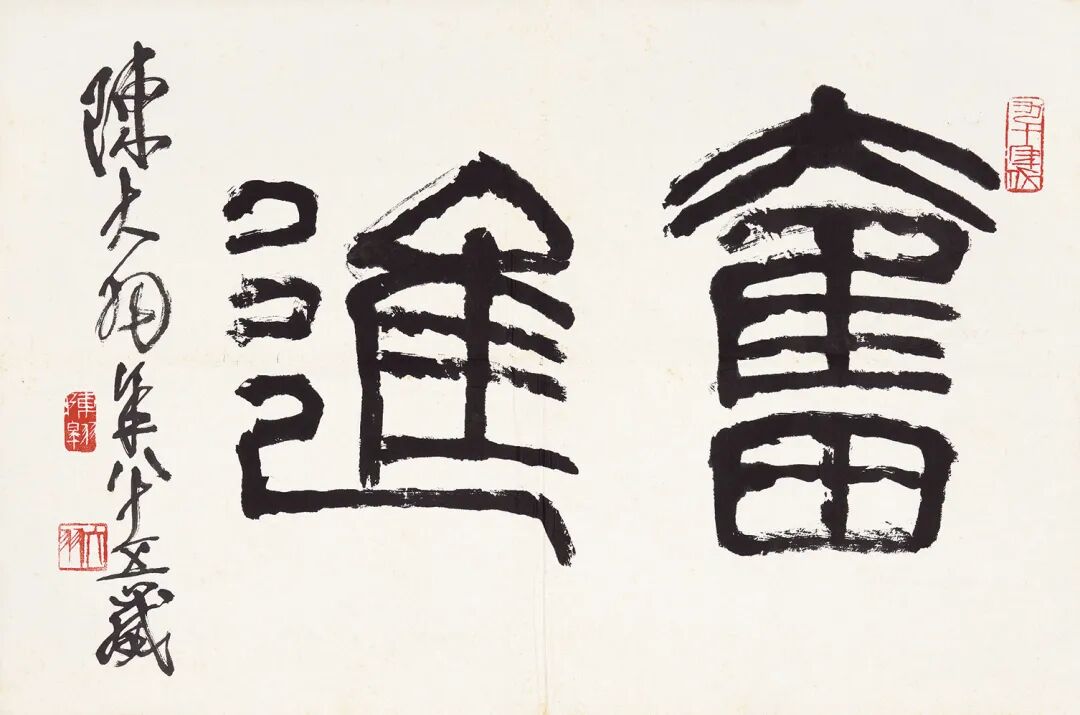 奮進
陳大羽年八十五歲
陳翱
大羽